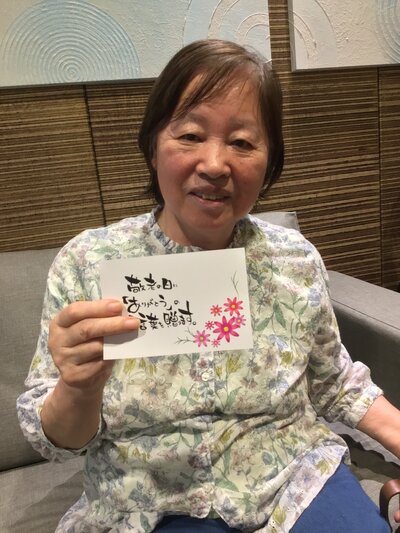 敬老日に
「ありがとう」の
言葉を贈ります。